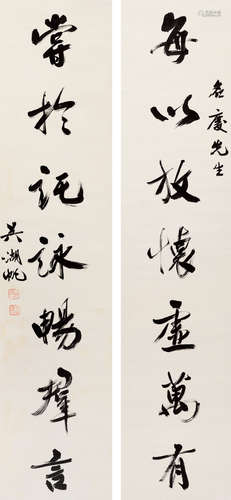 每以放懷虛萬有
慶先生
嘗於託詠暢羣言
吳湖帆